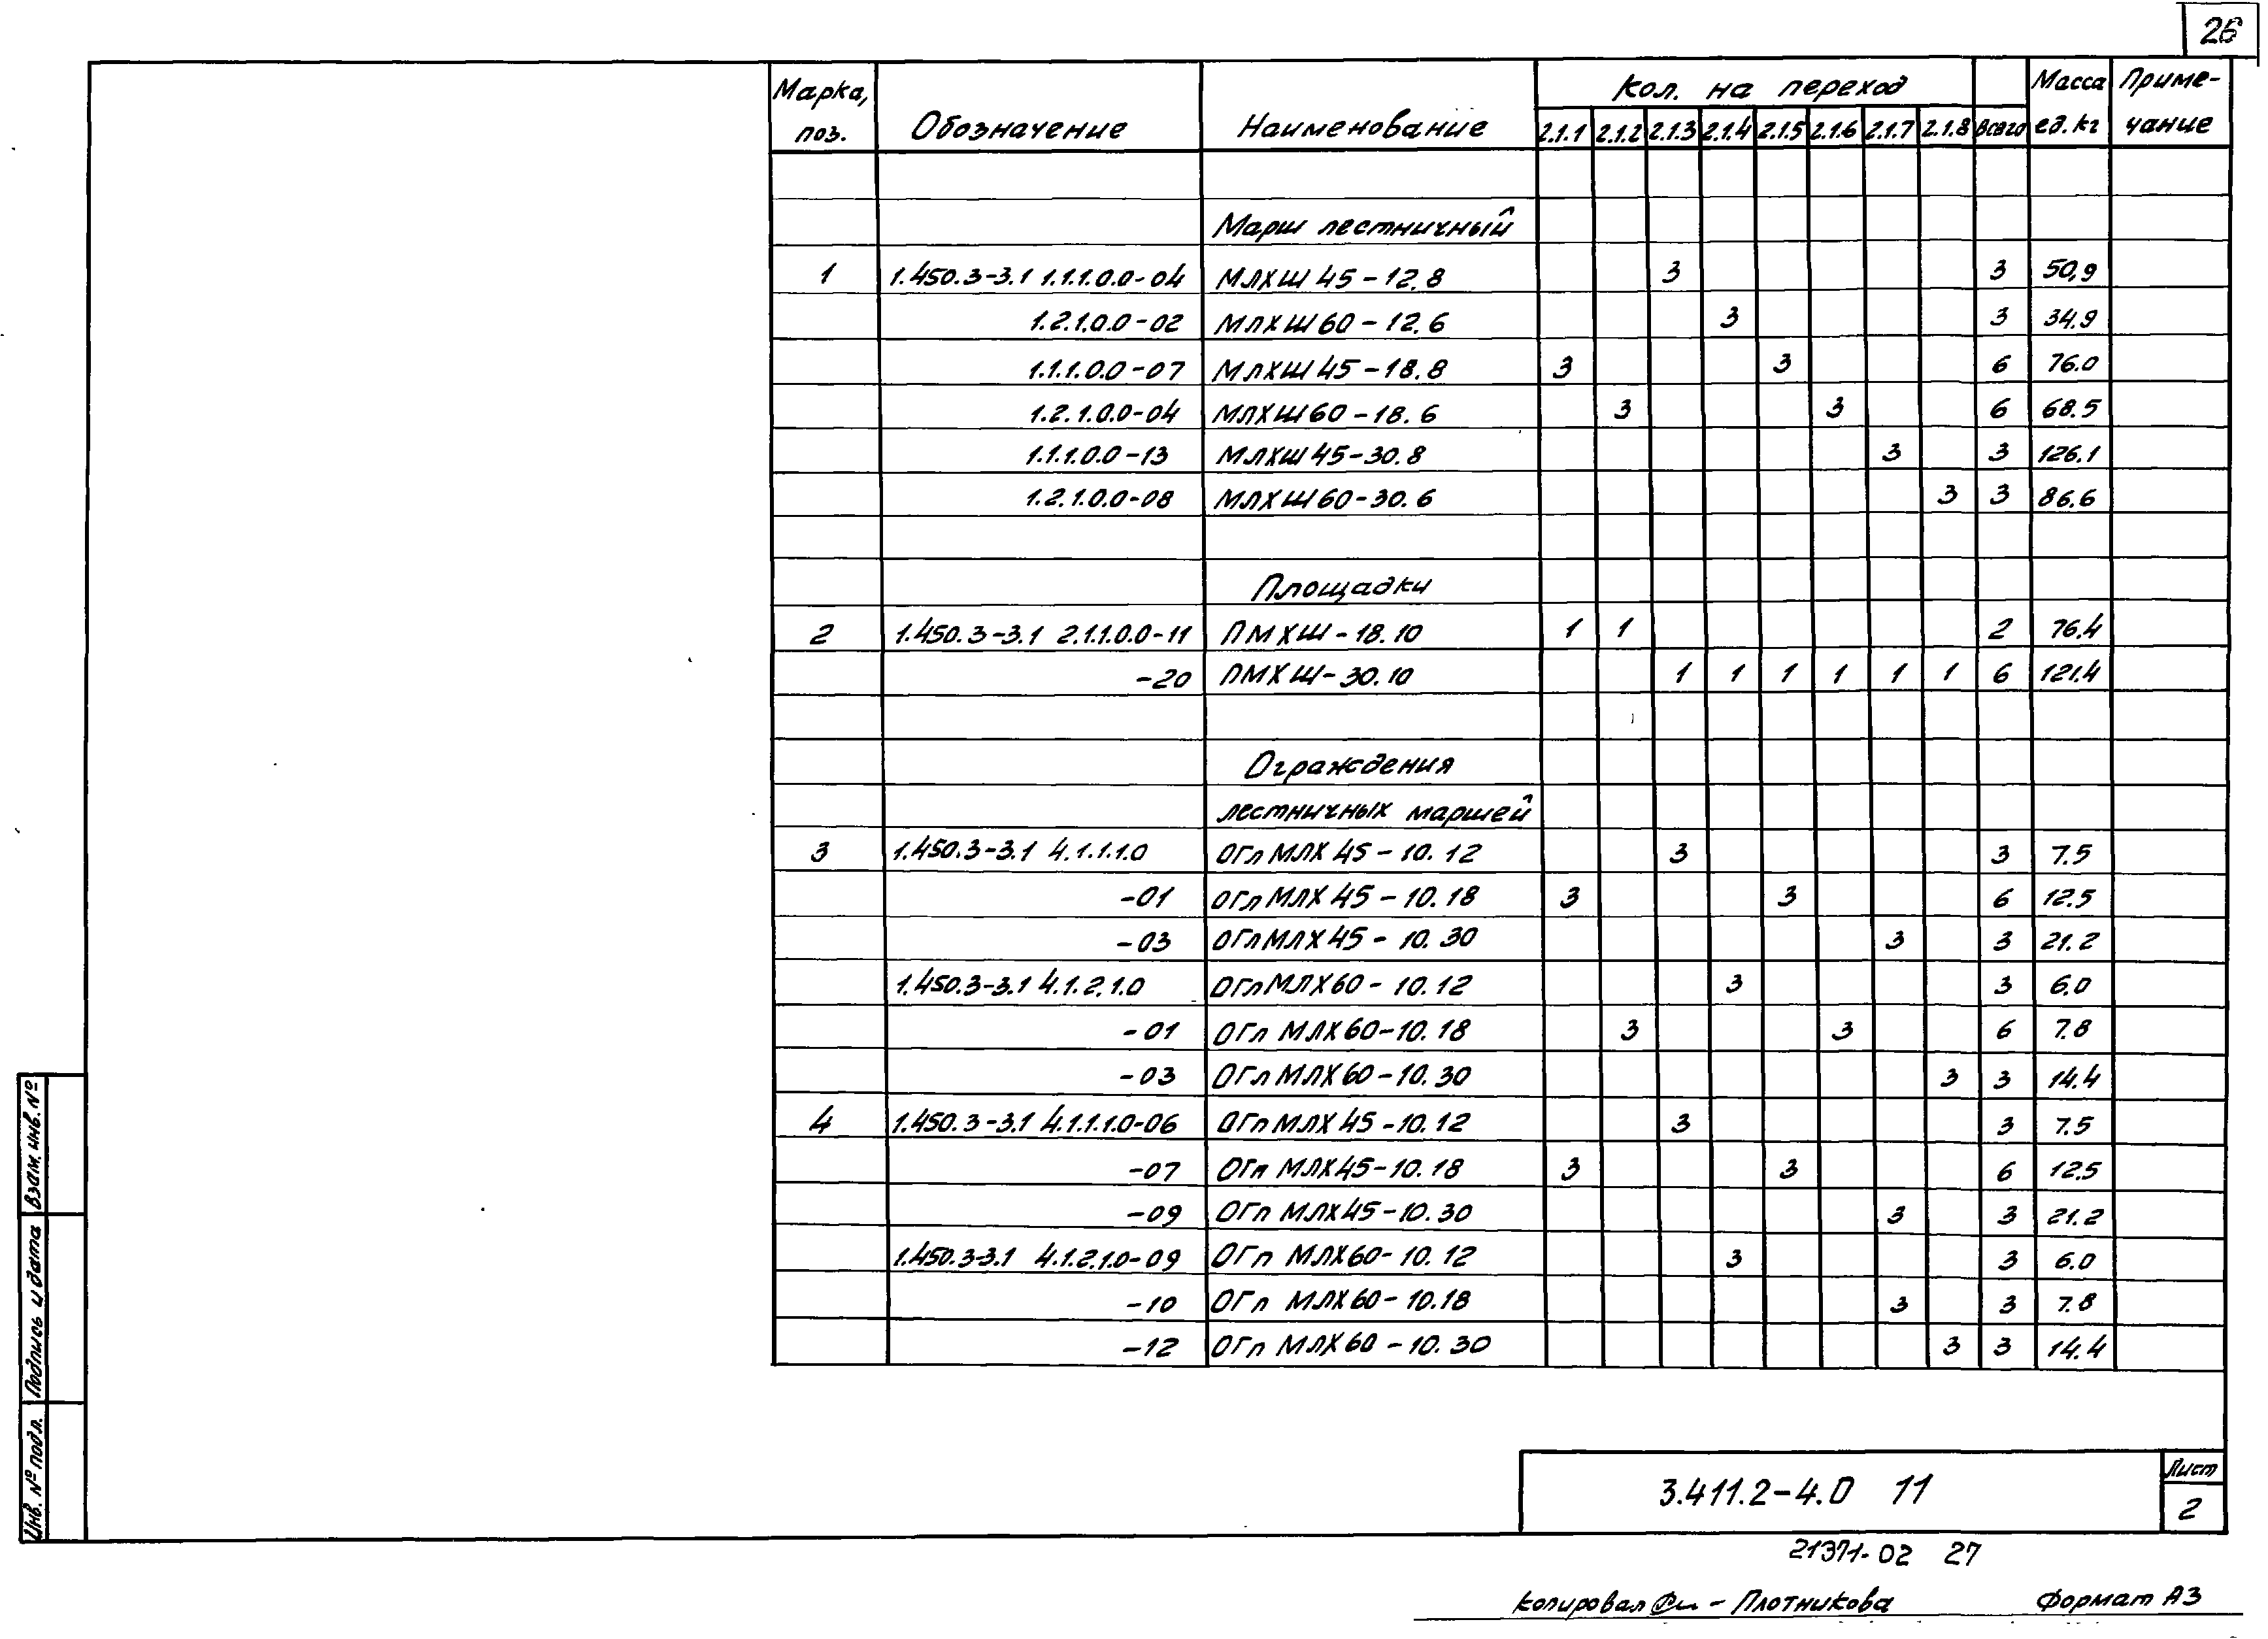 26
Марка, поз. Обозначение Наименование Кол. на переход Всего Масса ед. кг Примечание
2.1.1 2.1.2 2.1.3 2.1.4 2.1.5 2.1.6 2.1.7 2.1.8
Марш лестничный
1 1.450.3-3.1 1.1.1.0.0-04 МЛХШ 45-12.8 3 3 50,9
1.2.1.0.0-02 МЛХШ 60-12.6 3 3 34.9
1.1.1.0.0-07 МЛХШ 45-18.8 3 3 6 76.0
1.2.1.0.0-04 МЛХШ 60-18.6 3 3 6 68.5
1.1.1.0.0-13 МЛХШ 45-30.8 3 3 126.1
1.2.1.0.0-08 МЛХШ 60-30.6 3 3 86.6
Площадки
2 1.450.3-3.1 2.1.1.0.0-11 ПМХШ-18.10 1 1 2 76.4
-20 ПМХШ-30.10 1 1 1 1 1 1 6 121.4
Ограждения
лестничных маршей
3 1.450.3-3.1 4.1.1.1.0 ОГл МЛХ 45-10.12 3 3 7.5
-01 ОГл МЛХ 45-10.18 3 3 6 12.5
-03 ОГл МЛХ 45-10.30 3 3 21.2
1.450.3-3.1 4.1.2.1.0 ОГл МЛХ 60-10.12 3 3 6.0
-01 ОГл МЛХ 60-10.18 3 3 6 7.8
-03 ОГл МЛХ 60-10.30 3 3 14.4
4 1.450.3-3.1 4.1.1.1.0-06 ОГп МЛХ 45-10.12 3 3 7.5
-07 ОГп МЛХ 45-10.18 3 3 6 12.5
-09 ОГп МЛХ 45-10.30 3 3 21.2
1.450.3-3.1 4.1.2.1.0-09 ОГп МЛХ 60-10.12 3 3 6.0
-10 ОГп МЛХ 60-10.18 3 3 7.8
-12 ОГп МЛХ 60-10.30 3 3 14.4
Взам. инв. №
Подпись и дата
Инв. № подл.
3.411.2-4.0 11
Лист
2
21371-02 27
Копировал - Плотникова Формат А3